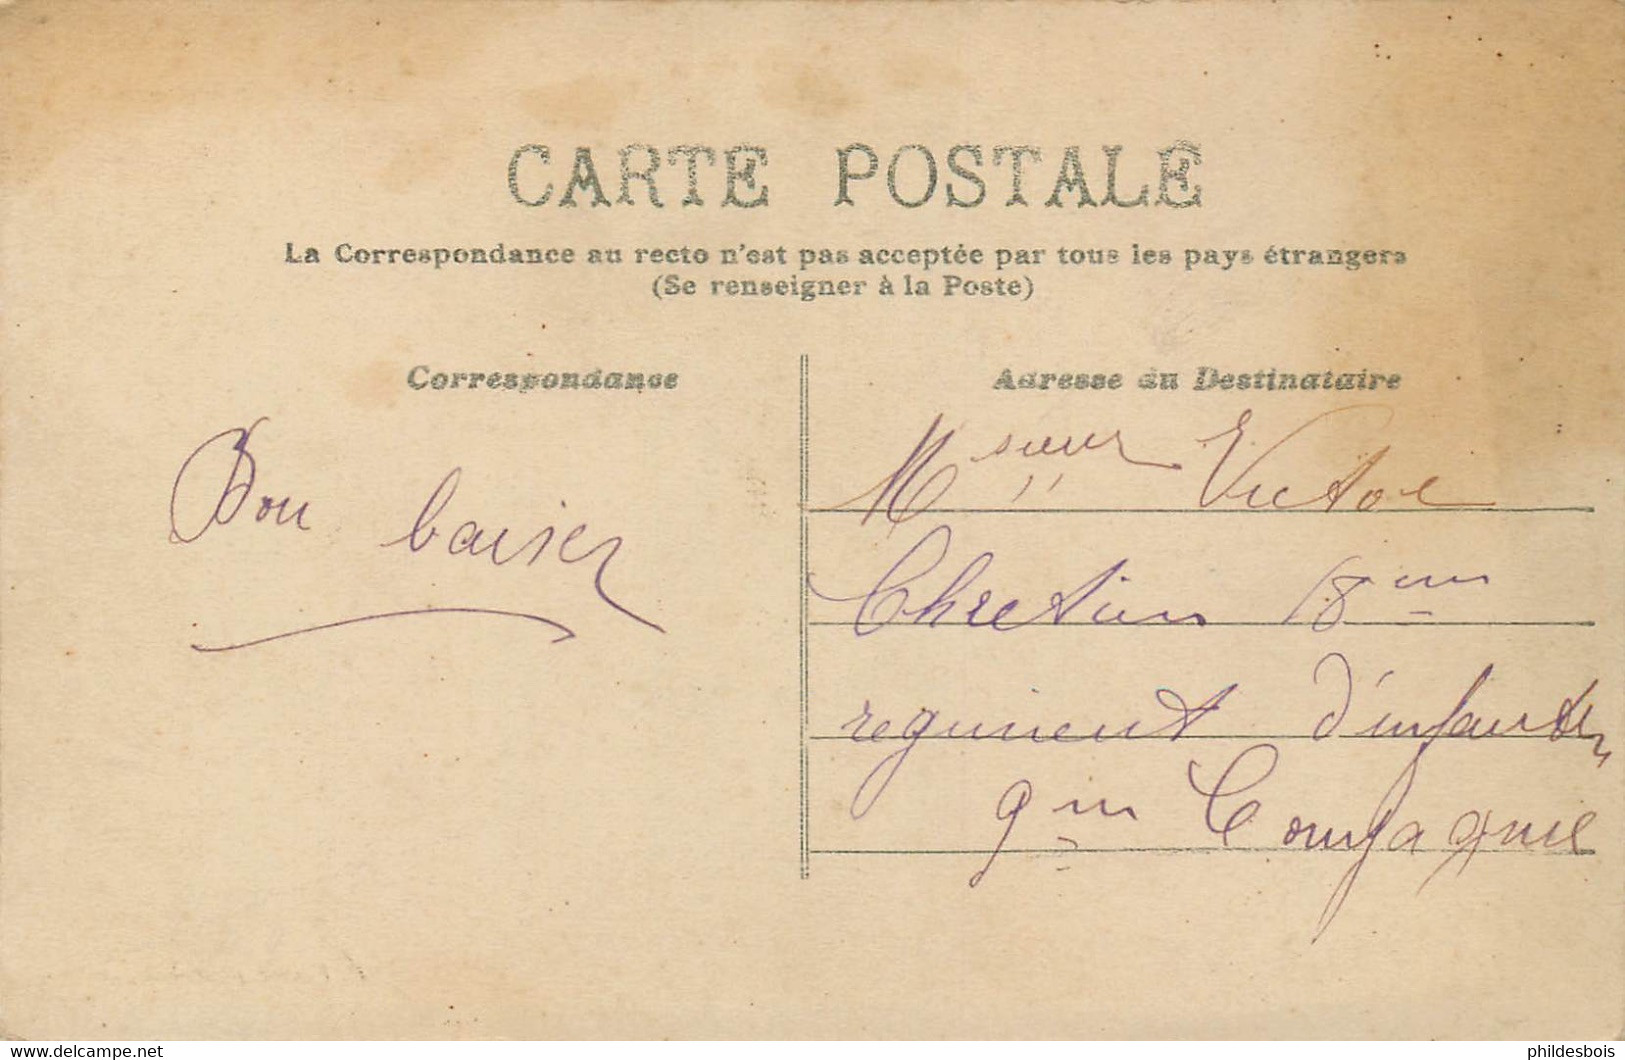 CARTE POSTALE
La Correspondance au recto n'est pas acceptée par tous les pays étrangers
(Se renseigner à la Poste)
Correspondance
Bon baiser
Adresse du Destinataire
Msieur Victor
Chretien 18em
regiment d'infanterie
9em Compagnie
www.delcampe.net
phildesbois